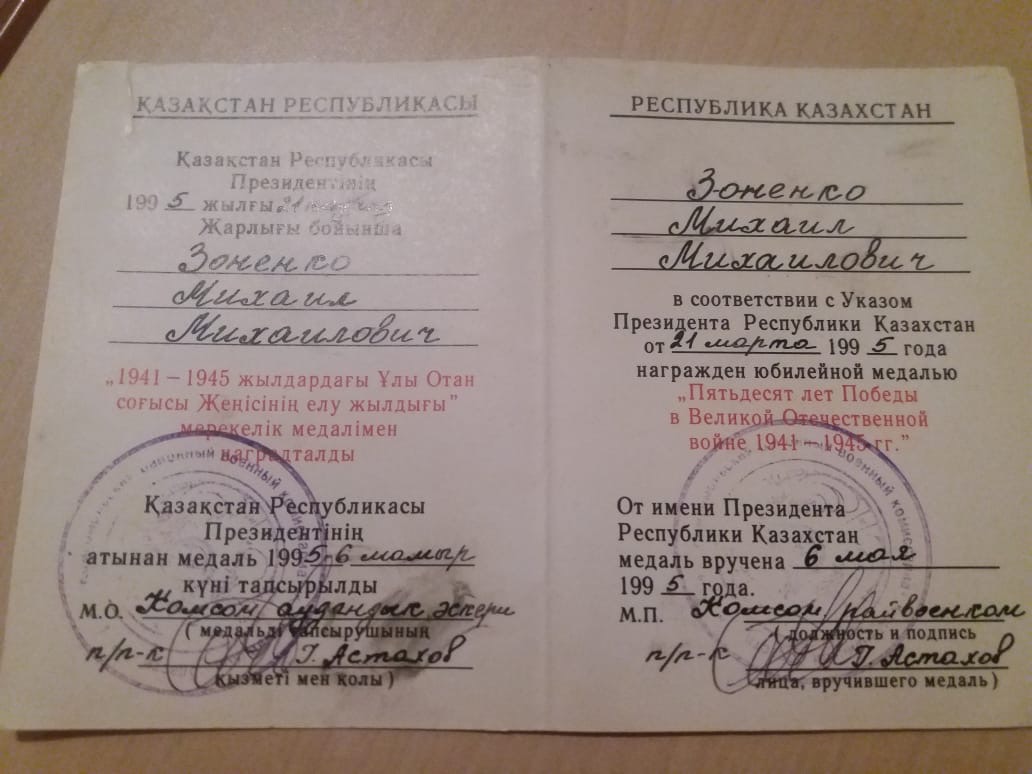 ҚАЗАҚСТАН РЕСПУБЛИКАСЫ
Қазақстан Республикасы
Президентінің
1995 жылғы 21
Жарлығы бойынша
Зоненко
Михаил
Михайлович
„1941 – 1945 жылдардағы Ұлы Отан
соғысы Жеңісінің елу жылдығы”
мерекелік медалімен
наградталды
Қазақстан Республикасы
Президентінің
атынан медаль 1995-6 мамыр
күні тапсырылды
М.О. Комсом аудандық әскери
( медальді тапсырушының
п/п-к Г. Астахов
қызметі мен қолы )
РЕСПУБЛИКА КАЗАХСТАН
Зоненко
Михаил
Михайлович
в соответствии с Указом
Президента Республики Казахстан
от 21 марта 1995 года
награжден юбилейной медалью
„Пятьдесят лет Победы
в Великой Отечественной
войне 1941 – 1945 гг.”
От имени Президента
Республики Казахстан
медаль вручена 6 мая
1995 года.
М.П. Комсом райвоенком
( должность и подпись
п/п-к Г. Астахов
лица, вручившего медаль )
районный военный
военный